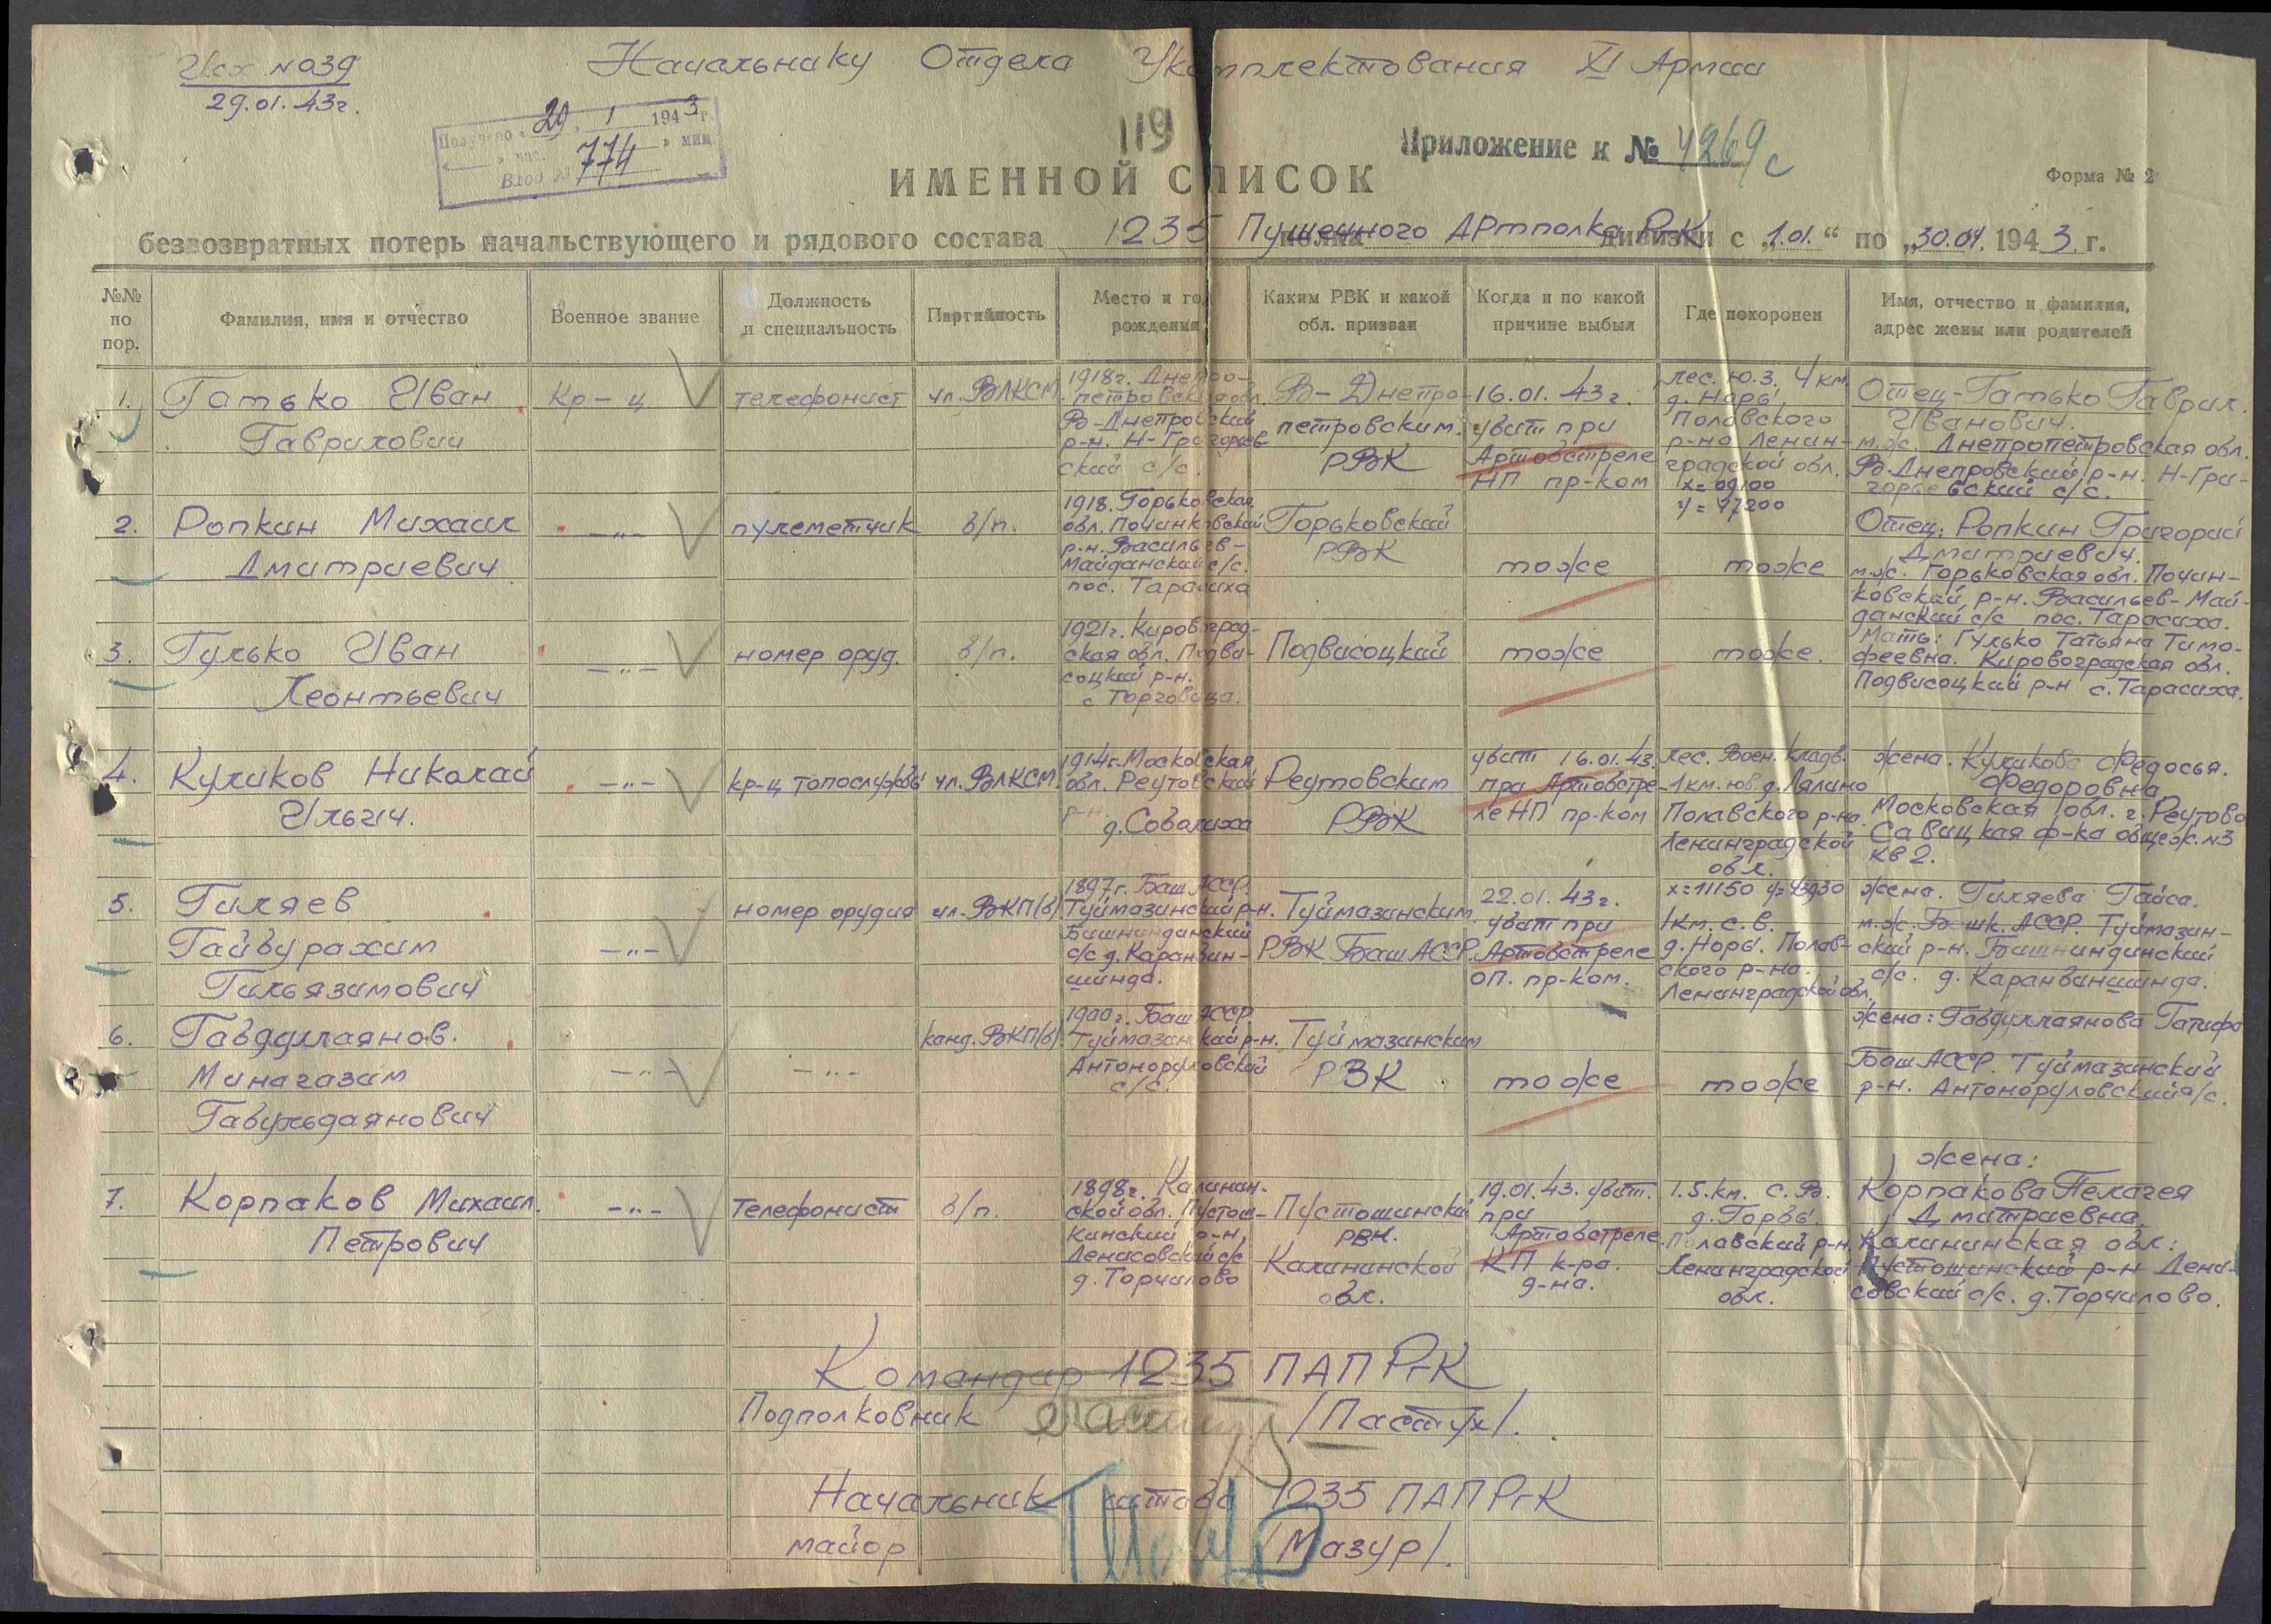 Исх №039
29.01.43г.
Начальнику Отдела Укомплектования XI Армии
Получено «29» 1 1943г.
« » час. » мин.
Вход № 774
119
Приложение к № 4269с
ИМЕННОЙ СПИСОК
Форма № 2
безвозвратных потерь начальствующего и рядового состава 1235 Пушечного АРтполка РГК полка дивизии с „1.01.“ по „30.01. 1943 г.
№№ по пор.
Фамилия, имя и отчество
Военное звание
Должность и специальность
Партийность
Место и год рождения
Каким РВК и какой обл. призван
Когда и по какой причине выбыл
Где похоронен
Имя, отчество и фамилия, адрес жены или родителей
1.
Гатько Иван
Гаврилович
Кр-ц
телефонист
чл. ВЛКСМ.
1918г. Днепро-
петровская обл.
В-Днепровский
р-н. Н-Григорьев-
ский с/с.
В-Днепро-
петровским.
РВК
16.01.43г.
убит при
Артобстреле
НП пр-ком
лес. ю.з. 4 км.
д. Норы.
Полавского
р-на Ленин-
градской обл.
х=09100
у=47200
Отец-Гатько Гаврил.
Иванович.
м.ж. Днепропетровская обл.
В.Днепровский р-н. Н-Гри-
горьевский с/с.
2.
Ропкин Михаил
Дмитриевич
-"-
пулеметчик
б/п.
1918. Горьковская
обл. Починковский
р-н. Васильев-
Майданский с/с.
пос. Тарасиха
Горьковский
РВК
тоже
тоже
Отец: Ропкин Григорий
Дмитриевич.
м.ж. Горьковская обл. Почин-
ковский р-н. Васильев-Май-
данский с/с пос. Тарасиха.
3.
Гулько Иван
Леонтьевич
-"-
номер оруд.
б/п.
1921г. Кировоград-
ская обл. Подви-
соцкий р-н.
с Торговица.
Подвисоцкий
тоже
тоже.
Мать: Гулько Татьяна Тимо-
феевна. Кировоградская обл.
Подвисоцкий р-н с. Тарасиха.
4.
Куликов Николай
Ильич.
-"-
кр-ц топослужбы
чл. ВЛКСМ.
1914г. Московская
обл. Реутовский
р-н
д. Соболиха
Реутовским
РВК
убит 16.01.43.
при Артобстре-
ле НП пр-ком
лес. Воен. кладб.
1 км. юв. д. Лялино
Полавского р-на.
Ленинградской
обл.
х=11150 у=43930
жена. Куликова Федосья.
Федоровна
Московская обл. г. Реутово
Савицкая ф-ка общеж. №3
кв 2.
5.
Гиляев
Гайбурахим
Гильязимович
-"-
номер орудия
чл. ВКП(б)
1897г. Баш АССР.
Туймазинский р-н.
Бишнинданский
с/с д. Каранбин-
шинда.
Туймазинским
РВК Баш АССР.
22.01.43г.
убит при
Артобстреле
ОП. пр-ком.
1км. с.в.
д. Норы. Полав-
ского р-на.
Ленинградской обл.
жена. Гиляева Гайса.
м.ж. Башк. АССР. Туймазин-
ский р-н. Башниндинский
с/с. д. Каранваншинда.
6.
Габдуллаянов.
Минагазим
Габульдаянович
-"-
-"-
канд. ВКП(б)
1900г. Баш АССР
Туймазинский р-н.
Антоноруловский
с/с.
Туймазинским
РВК
тоже
тоже
жена: Габдуллаянова Гатифа
Баш АССР. Туймазинский
р-н. Антоноруловский с/с.
7.
Корпаков Михаил.
Петрович
-"-
Телефонист
б/п.
1898г. Калинин-
ской обл. Пустош-
кинский р-н.
Денисовский с/с
д. Торчилово
Пустошинский
РВК.
Калининской
обл.
19.01.43. убит.
при
Артобстреле.
КП к-ра.
д-на.
1.5. км. с.в.
д. Горбы.
Полавский р-н.
Ленинградской
обл.
жена:
Корпакова Пелагея
Дмитриевна.
Калининская обл:
Пустошинский р-н Дени-
совский с/с. д. Торчилово.
Командир 1235 ПАП РГК
Подполковник /Пастух/.
Начальник штаба 1235 ПАП РГК
майор /Мазур/.